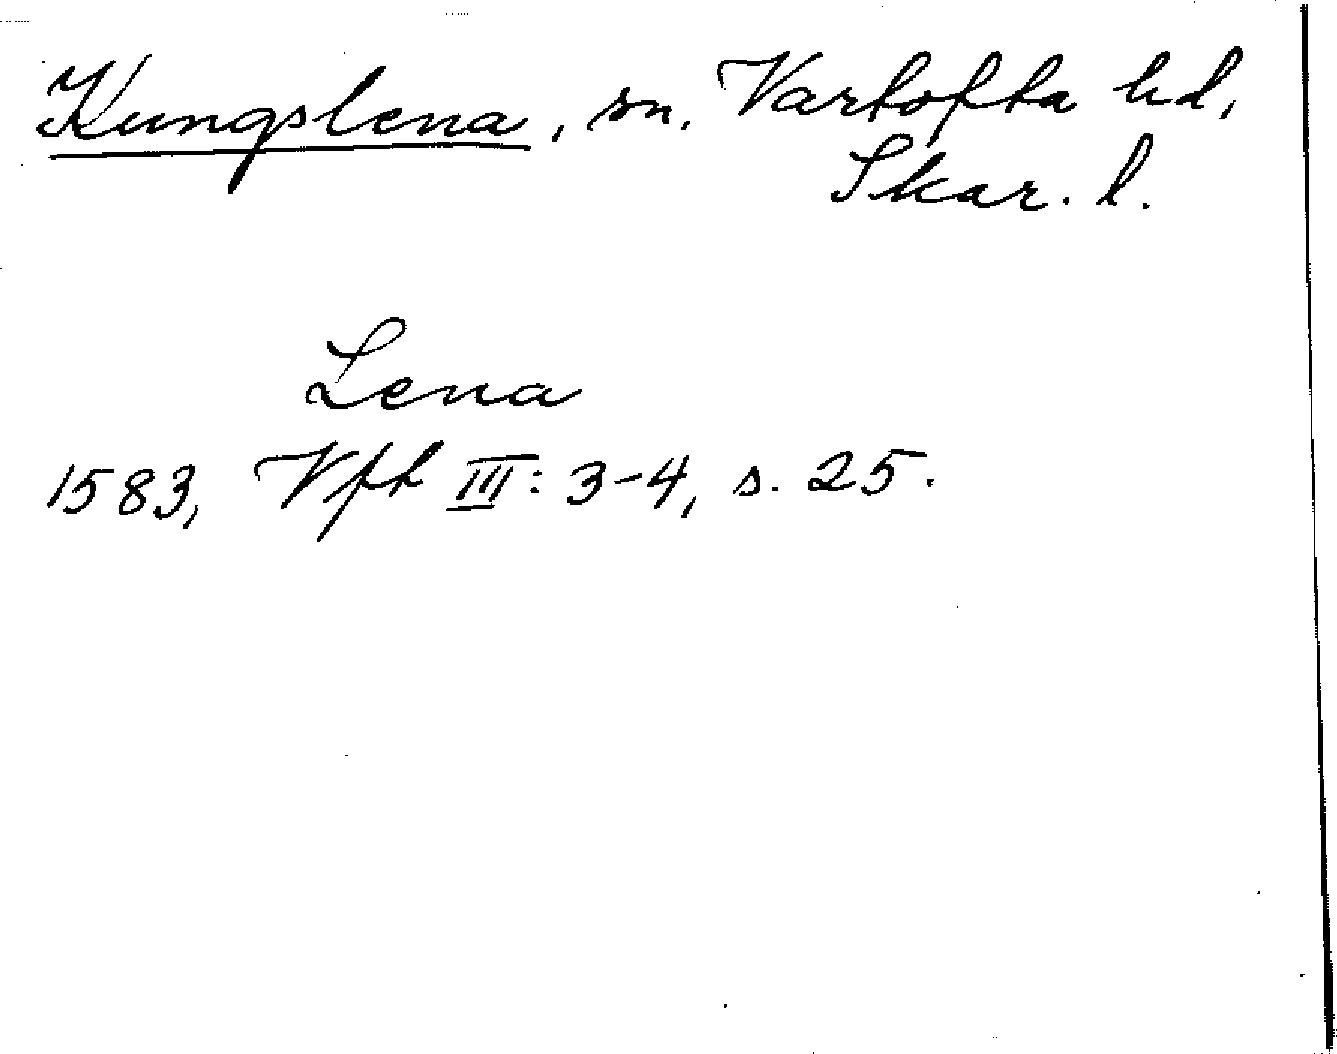 Kungslena, sn. Vartofta hd,
Skar. l.
Lena
1583, Vft III: 3-4, s. 25.